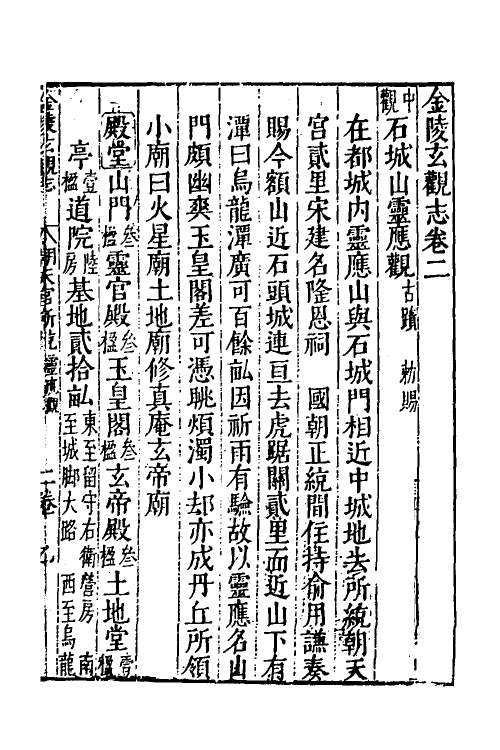 金陵玄觀志卷二
中觀石城山靈應觀古蹟 勅賜
在都城內靈應山與石城門相近中城地去所統朝天
宮貳里宋建名隆恩祠 國朝正統間住持俞用謙奏
賜今額山近石頭城連亘去虎踞關貳里而近山下有
潭曰烏龍潭廣可百餘畝因祈雨有驗故以靈應名山
門頗幽爽玉皇閣差可憑眺煩濁小却亦成丹丘所領
小廟曰火星廟土地廟修真庵玄帝廟
殿堂山門叁楹靈官殿叁楹玉皇閣叁楹玄帝殿叁楹土地堂壹楹
亭壹楹道院陸房基地貳拾畝東至留守右衛營房 南至城脚大路 西至烏龍
金陵玄觀志 朝天宮所統靈應觀 二卷